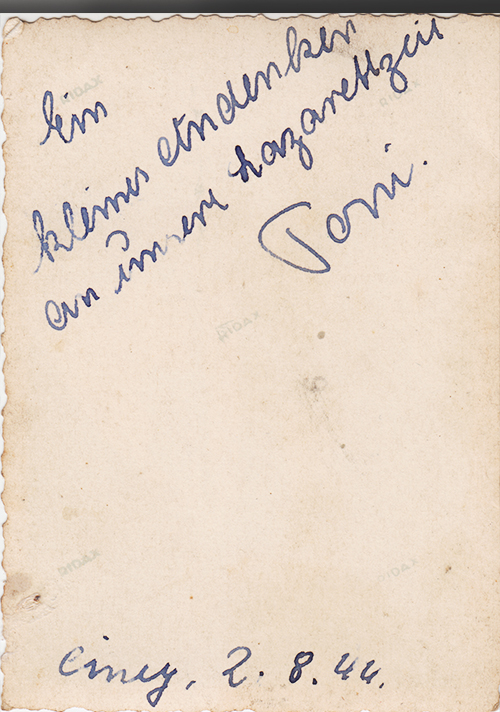 Ein
kleines Andenken
an unsere Lazarettzeit
Toni.
Ciney, 2. 8. 44.
RIDAX
RIDAX
RIDAX
RIDAX
RIDAX